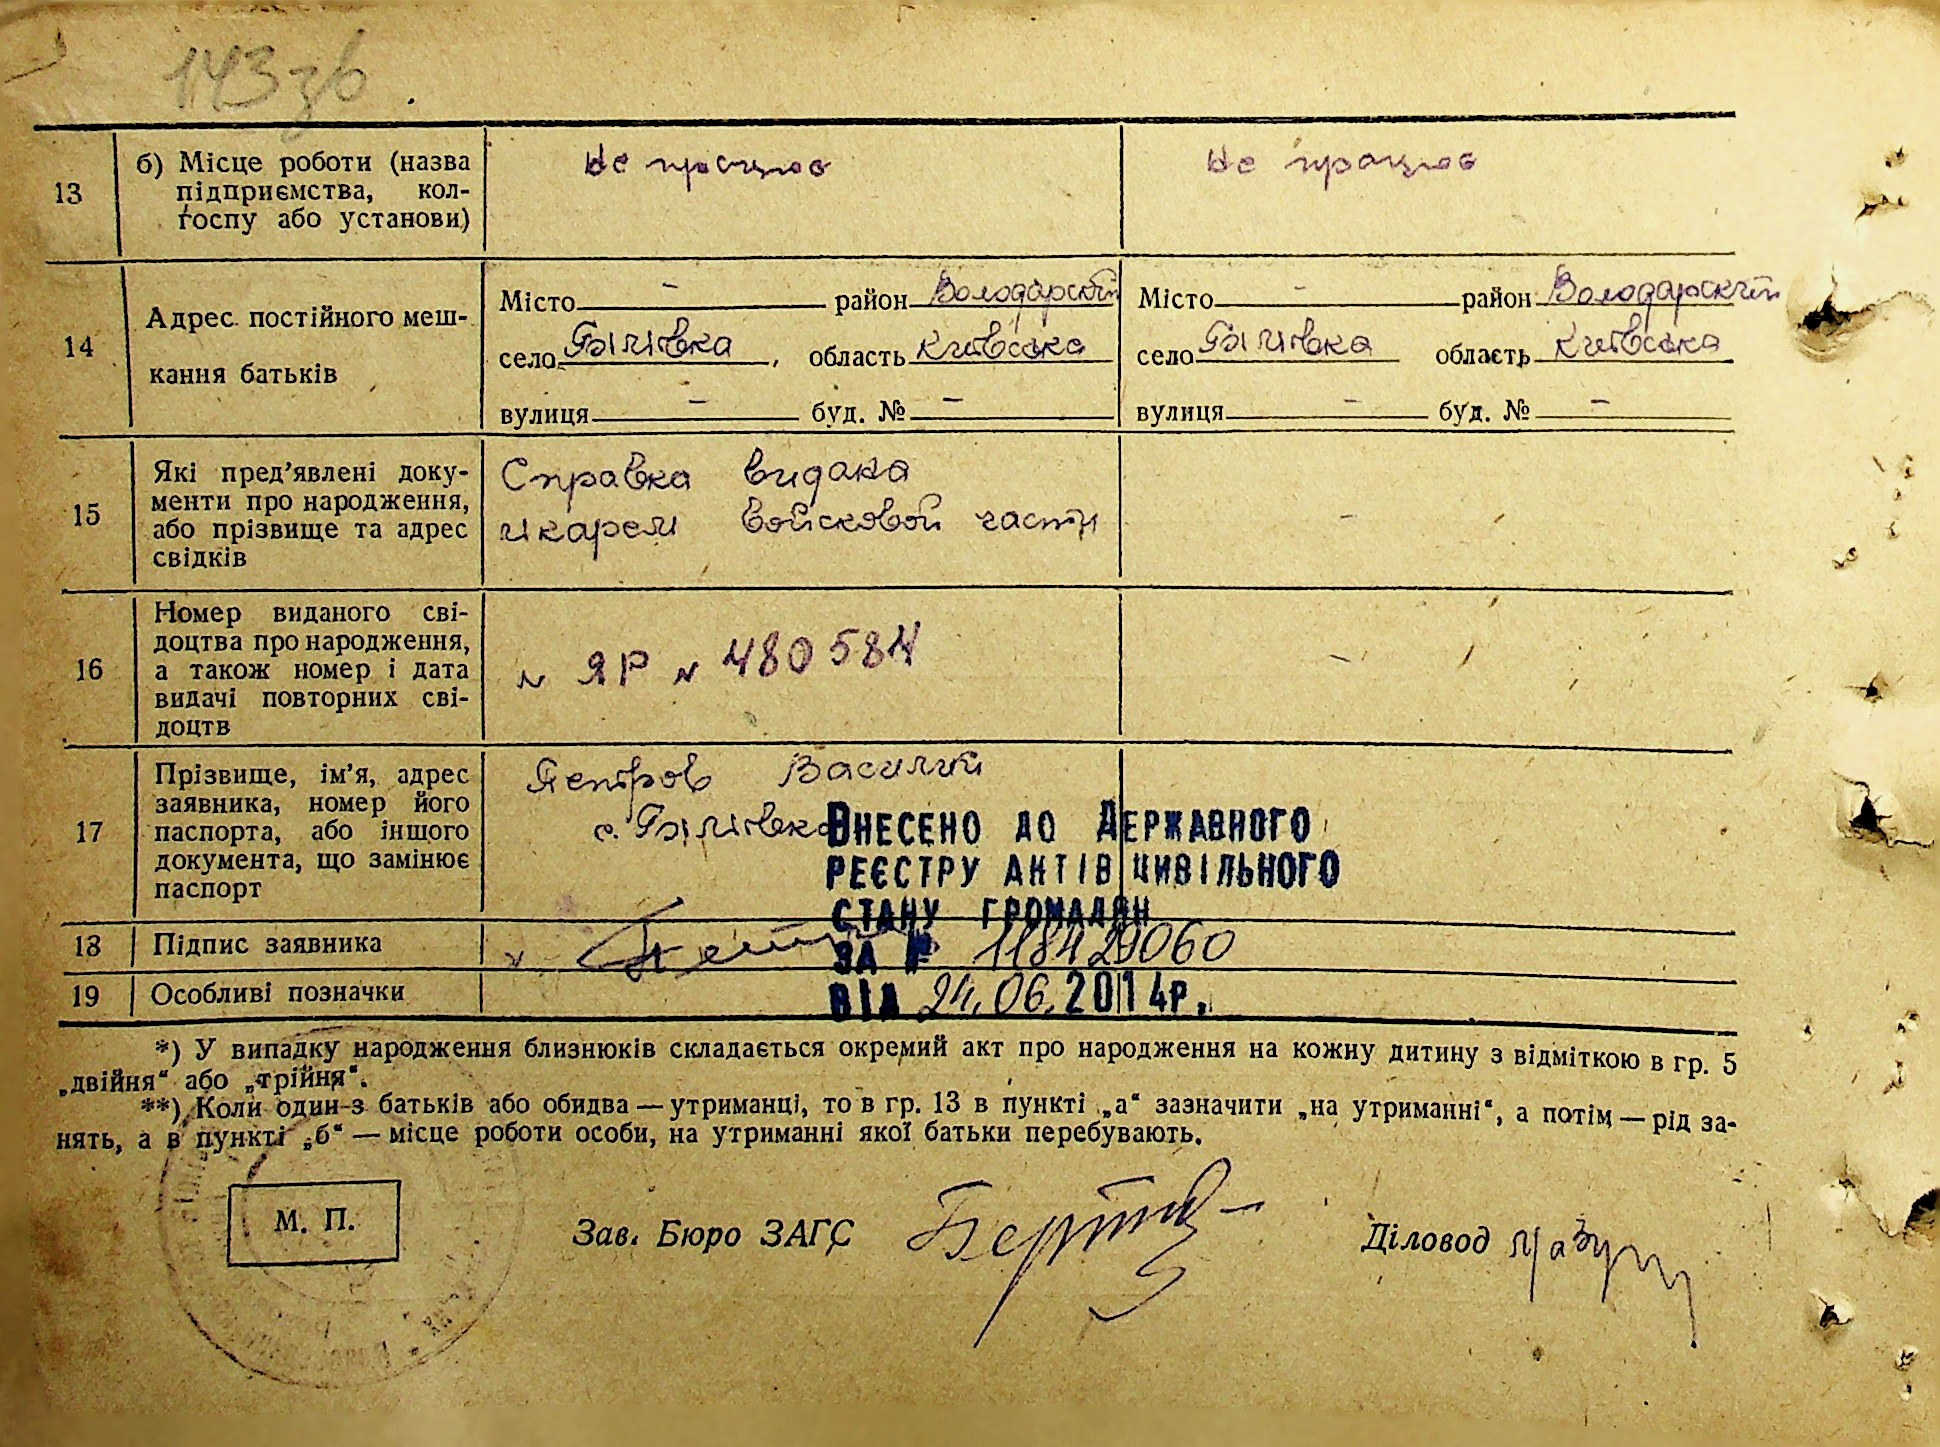 143 зв
13
б) Місце роботи (назва
підприємства, кол-
госпу або установи)
Не працює
Не працює
14
Адрес постійного меш-
кання батьків
Місто - район Володарскій
село Білієвка, область Київська
вулиця - буд. № -
Місто - район Володарский
село Білієвка область Київська
вулиця - буд. № -
15
Які пред’явлені доку-
менти про народження,
або прізвище та адрес
свідків
Справка видана
лікарем войсковой части
-
16
Номер виданого сві-
доцтва про народження,
а також номер і дата
видачі повторних сві-
доцтв
№ ЯР № 480584
-
17
Прізвище, ім’я, адрес
заявника, номер його
паспорта, або іншого
документа, що замінює
паспорт
Петров Василий
с. Білієвка
ВНЕСЕНО ДО ДЕРЖАВНОГО
РЕЄСТРУ АКТІВ ЦИВІЛЬНОГО
СТАНУ ГРОМАДЯН
ЗА № 118429060
ВІД 24.06.2014р.
18
Підпис заявника
19
Особливі позначки
*) У випадку народження близнюків складається окремий акт про народження на кожну дитину з відміткою в гр. 5
„двійня“ або „трійня“.
**) Коли один з батьків або обидва — утриманці, то в гр. 13 в пункті „а“ зазначити „на утриманні“, а потім — рід за-
нять, а в пункті „б“ — місце роботи особи, на утриманні якої батьки перебувають.
М. П.
Зав. Бюро ЗАГС
Діловод